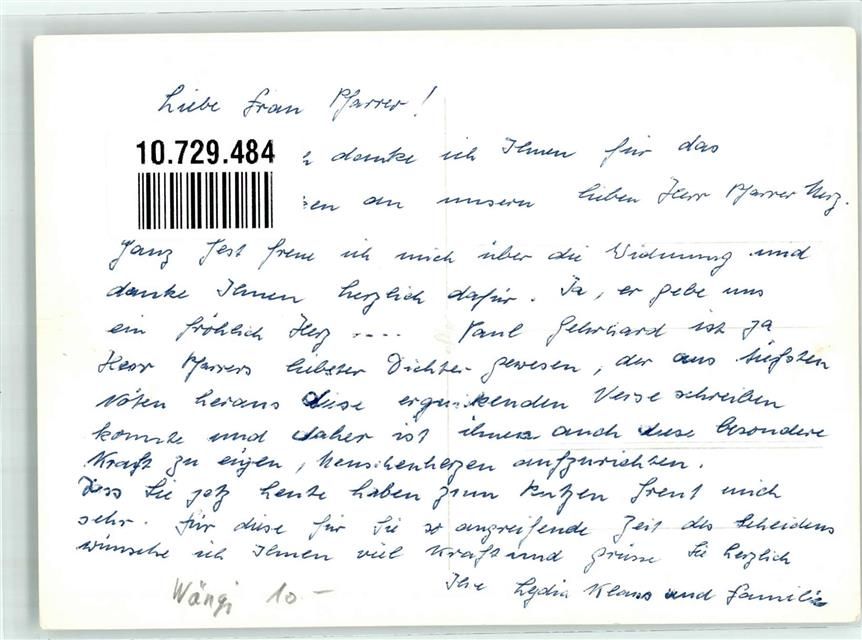 Liebe Frau Pfarrer!
10.729.484
danke ich Ihnen für das
en an unsern lieben Herr Pfarrer Merz.
Ganz fest freue ich mich über die Widmung und
danke Ihnen herzlich dafür. Ja, er gebe uns
ein fröhlich Herz .... Paul Gehrhard ist ja
Herr Pfarrers liebster Dichter gewesen, der aus tiefsten
Nöten heraus diese erquickenden Verse schreiben
konnte und daher ist ihnen auch diese besondere
Kraft zu eigen, Menschenherzen aufzurichten.
Dass Sie jetz heute haben zum Putzen freut mich
sehr. Für diese für Sie so angreifende Zeit des Scheidens
wünsche ich Ihnen viel Kraft und grüsse Sie herzlich
Ihre Lydia Klaus und Familie
Wängi 10 -